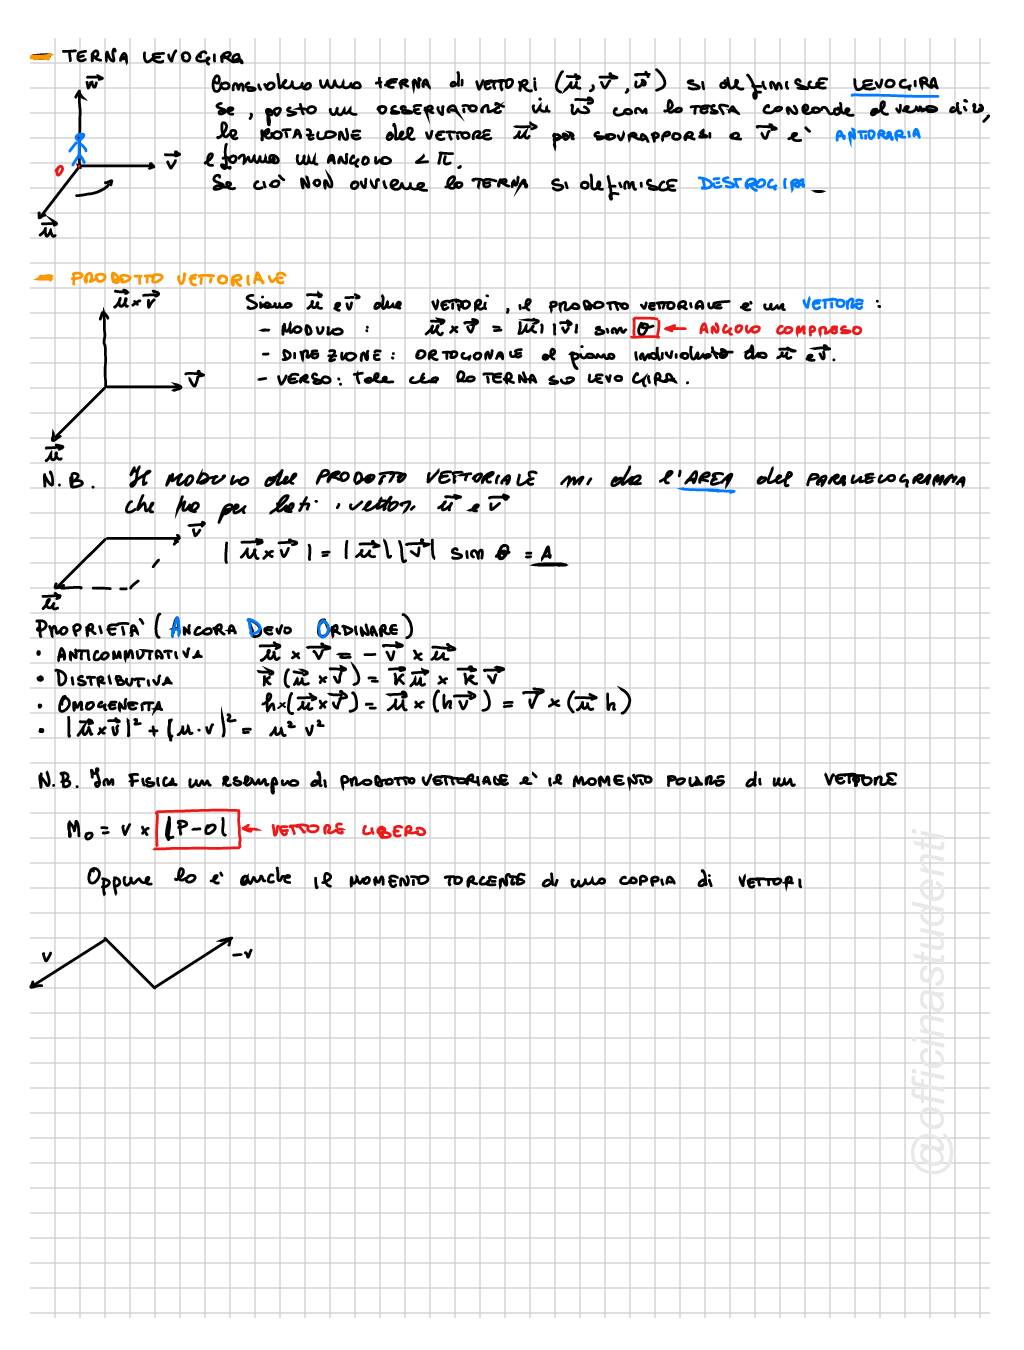 - TERNA LEVOGIRA
w⃗
Considero una TERNA di VETTORI (u⃗, v⃗, w⃗) si definisce LEVOGIRA
Se, posto un OSSERVATORE in w⃗ con la TESTA CONCORDE al verso di w,
la ROTAZIONE del VETTORE u⃗ per SOVRAPPORSI a v⃗ è ANTIORARIA
v⃗
O
e forma un ANGOLO < π.
Se ciò NON avviene la TERNA si definisce DESTROGIRA
u⃗
- PRODOTTO VETTORIALE
u⃗ x v⃗
Siano u⃗ e v⃗ due VETTORI, il PRODOTTO VETTORIALE è un VETTORE:
- MODULO : u⃗ x v⃗ = |u⃗| |v⃗| sin θ ← ANGOLO COMPRESO
- DIREZIONE: ORTOGONALE al piano individuato da u⃗ e v⃗.
- VERSO: Tale che la TERNA sia LEVOGIRA.
v⃗
u⃗
N.B. Il MODULO del PRODOTTO VETTORIALE mi da l'AREA del PARALLELOGRAMMA
che ha per lati i vettori u⃗ e v⃗
v⃗
| u⃗ x v⃗ | = |u⃗| |v⃗| sin θ = A
u⃗
PROPRIETA' (ANCORA DEVO ORDINARE)
• ANTICOMMUTATIVA u⃗ x v⃗ = - v⃗ x u⃗
• DISTRIBUTIVA k⃗ (u⃗ x v⃗) = k⃗ u⃗ x k⃗ v⃗
• OMOGENEITA h x (u⃗ x v⃗) = u⃗ x (h v⃗) = v⃗ x (u⃗ h)
• |u⃗ x v⃗|² + (u · v)² = u² v²
N.B. In FISICA un esempio di PRODOTTO VETTORIALE è il MOMENTO POLARE di un VETTORE
M₀ = v x |P-O| ← VETTORE LIBERO
Oppure lo è anche il MOMENTO TORCENTE di una COPPIA di VETTORI
v
-v
@officinastudenti